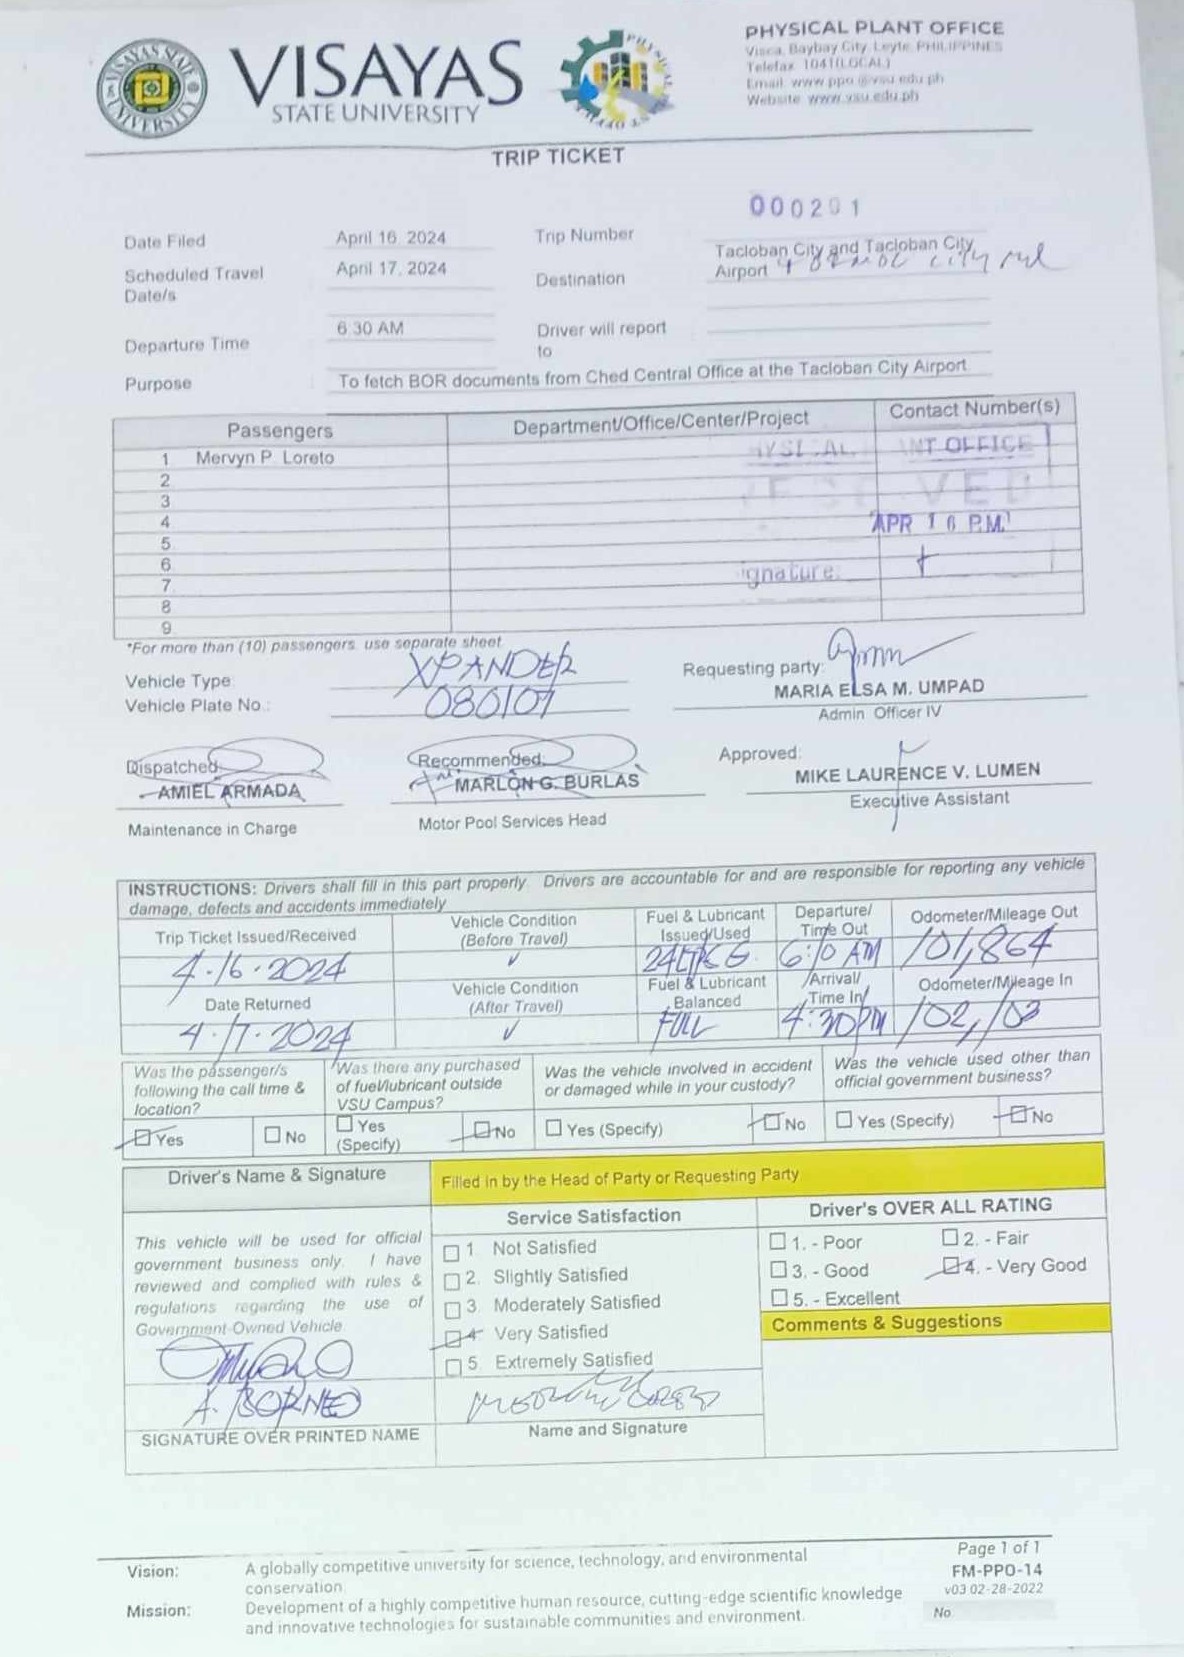 VISAYAS
STATE UNIVERSITY
PHYSICAL PLANT OFFICE
Visca, Baybay City, Leyte, PHILIPPINES
Telefax 1041(LOCAL)
Email www.ppo@vsu.edu.ph
Website www.vsu.edu.ph
TRIP TICKET
000201
Date Filed April 16, 2024 Trip Number
Scheduled Travel Date/s April 17, 2024 Destination Tacloban City and Tacloban City Airport + ormoc city
Departure Time 6:30 AM Driver will report to
Purpose To fetch BOR documents from Ched Central Office at the Tacloban City Airport.
Passengers Department/Office/Center/Project Contact Number(s)
1 Mervyn P. Loreto
2
3
4
5
6
7
8
9
NT OFFICE
APR 16 P.M.
ignature:
*For more than (10) passengers, use separate sheet
Vehicle Type: XPANDER
Vehicle Plate No.: 080107
Requesting party:
MARIA ELSA M. UMPAD
Admin. Officer IV
Dispatched:
AMIEL ARMADA
Maintenance in Charge
Recommended:
MARLON G. BURLAS
Motor Pool Services Head
Approved:
MIKE LAURENCE V. LUMEN
Executive Assistant
INSTRUCTIONS: Drivers shall fill in this part properly. Drivers are accountable for and are responsible for reporting any vehicle
damage, defects and accidents immediately
Trip Ticket Issued/Received Vehicle Condition (Before Travel) Fuel & Lubricant Issued/Used Departure/ Time Out Odometer/Mileage Out
4-16-2024 ✓ 6:10 AM 101,864
Date Returned Vehicle Condition (After Travel) Fuel & Lubricant Balanced Arrival/ Time In/ Odometer/Mileage In
4-17-2024 ✓ FULL 4:30PM 102,103
Was the passenger/s following the call time & location?
Was there any purchased of fuel/lubricant outside VSU Campus?
Was the vehicle involved in accident or damaged while in your custody?
Was the vehicle used other than official government business?
Yes No Yes (Specify) No Yes (Specify) No Yes (Specify) No
Driver's Name & Signature
Filled in by the Head of Party or Requesting Party
This vehicle will be used for official
government business only. I have
reviewed and complied with rules &
regulations regarding the use of
Government-Owned Vehicle.
A. BORNEO
SIGNATURE OVER PRINTED NAME
Service Satisfaction
1. Not Satisfied
2. Slightly Satisfied
3. Moderately Satisfied
4 Very Satisfied
5. Extremely Satisfied
Name and Signature
Driver's OVER ALL RATING
1. - Poor 2. - Fair
3. - Good 4. - Very Good
5. - Excellent
Comments & Suggestions
Vision: A globally competitive university for science, technology, and environmental
conservation.
Mission: Development of a highly competitive human resource, cutting-edge scientific knowledge
and innovative technologies for sustainable communities and environment.
Page 1 of 1
FM-PPO-14
v03 02-28-2022
No.